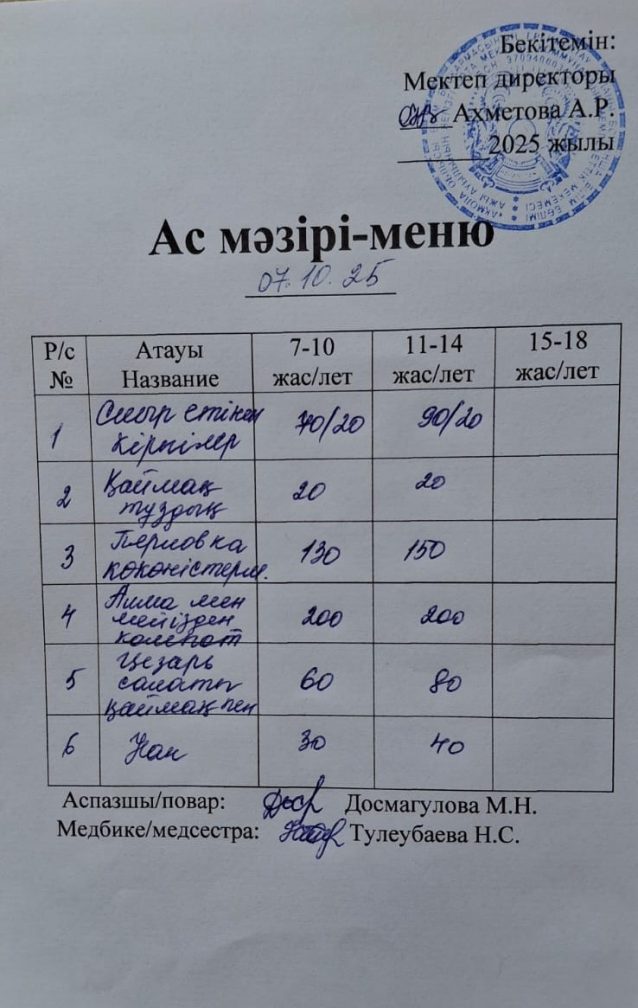 Бекітемін:
Мектеп директоры
Ахметова А.Р.
2025 жылы
Ас мәзірі-меню
07.10.25
Р/с № Атауы Название 7-10 жас/лет 11-14 жас/лет 15-18 жас/лет
1 Сиыр етінен кірпілер 70/20 90/20
2 Қаймақ тұздық 20 20
3 Перловка көкөністерм. 130 150
4 Алма мен мейізден компот 200 200
5 Цезарь салаты қаймақпен 60 80
6 Нан 30 40
Аспазшы/повар: Досмагулова М.Н.
Медбике/медсестра: Тулеубаева Н.С.